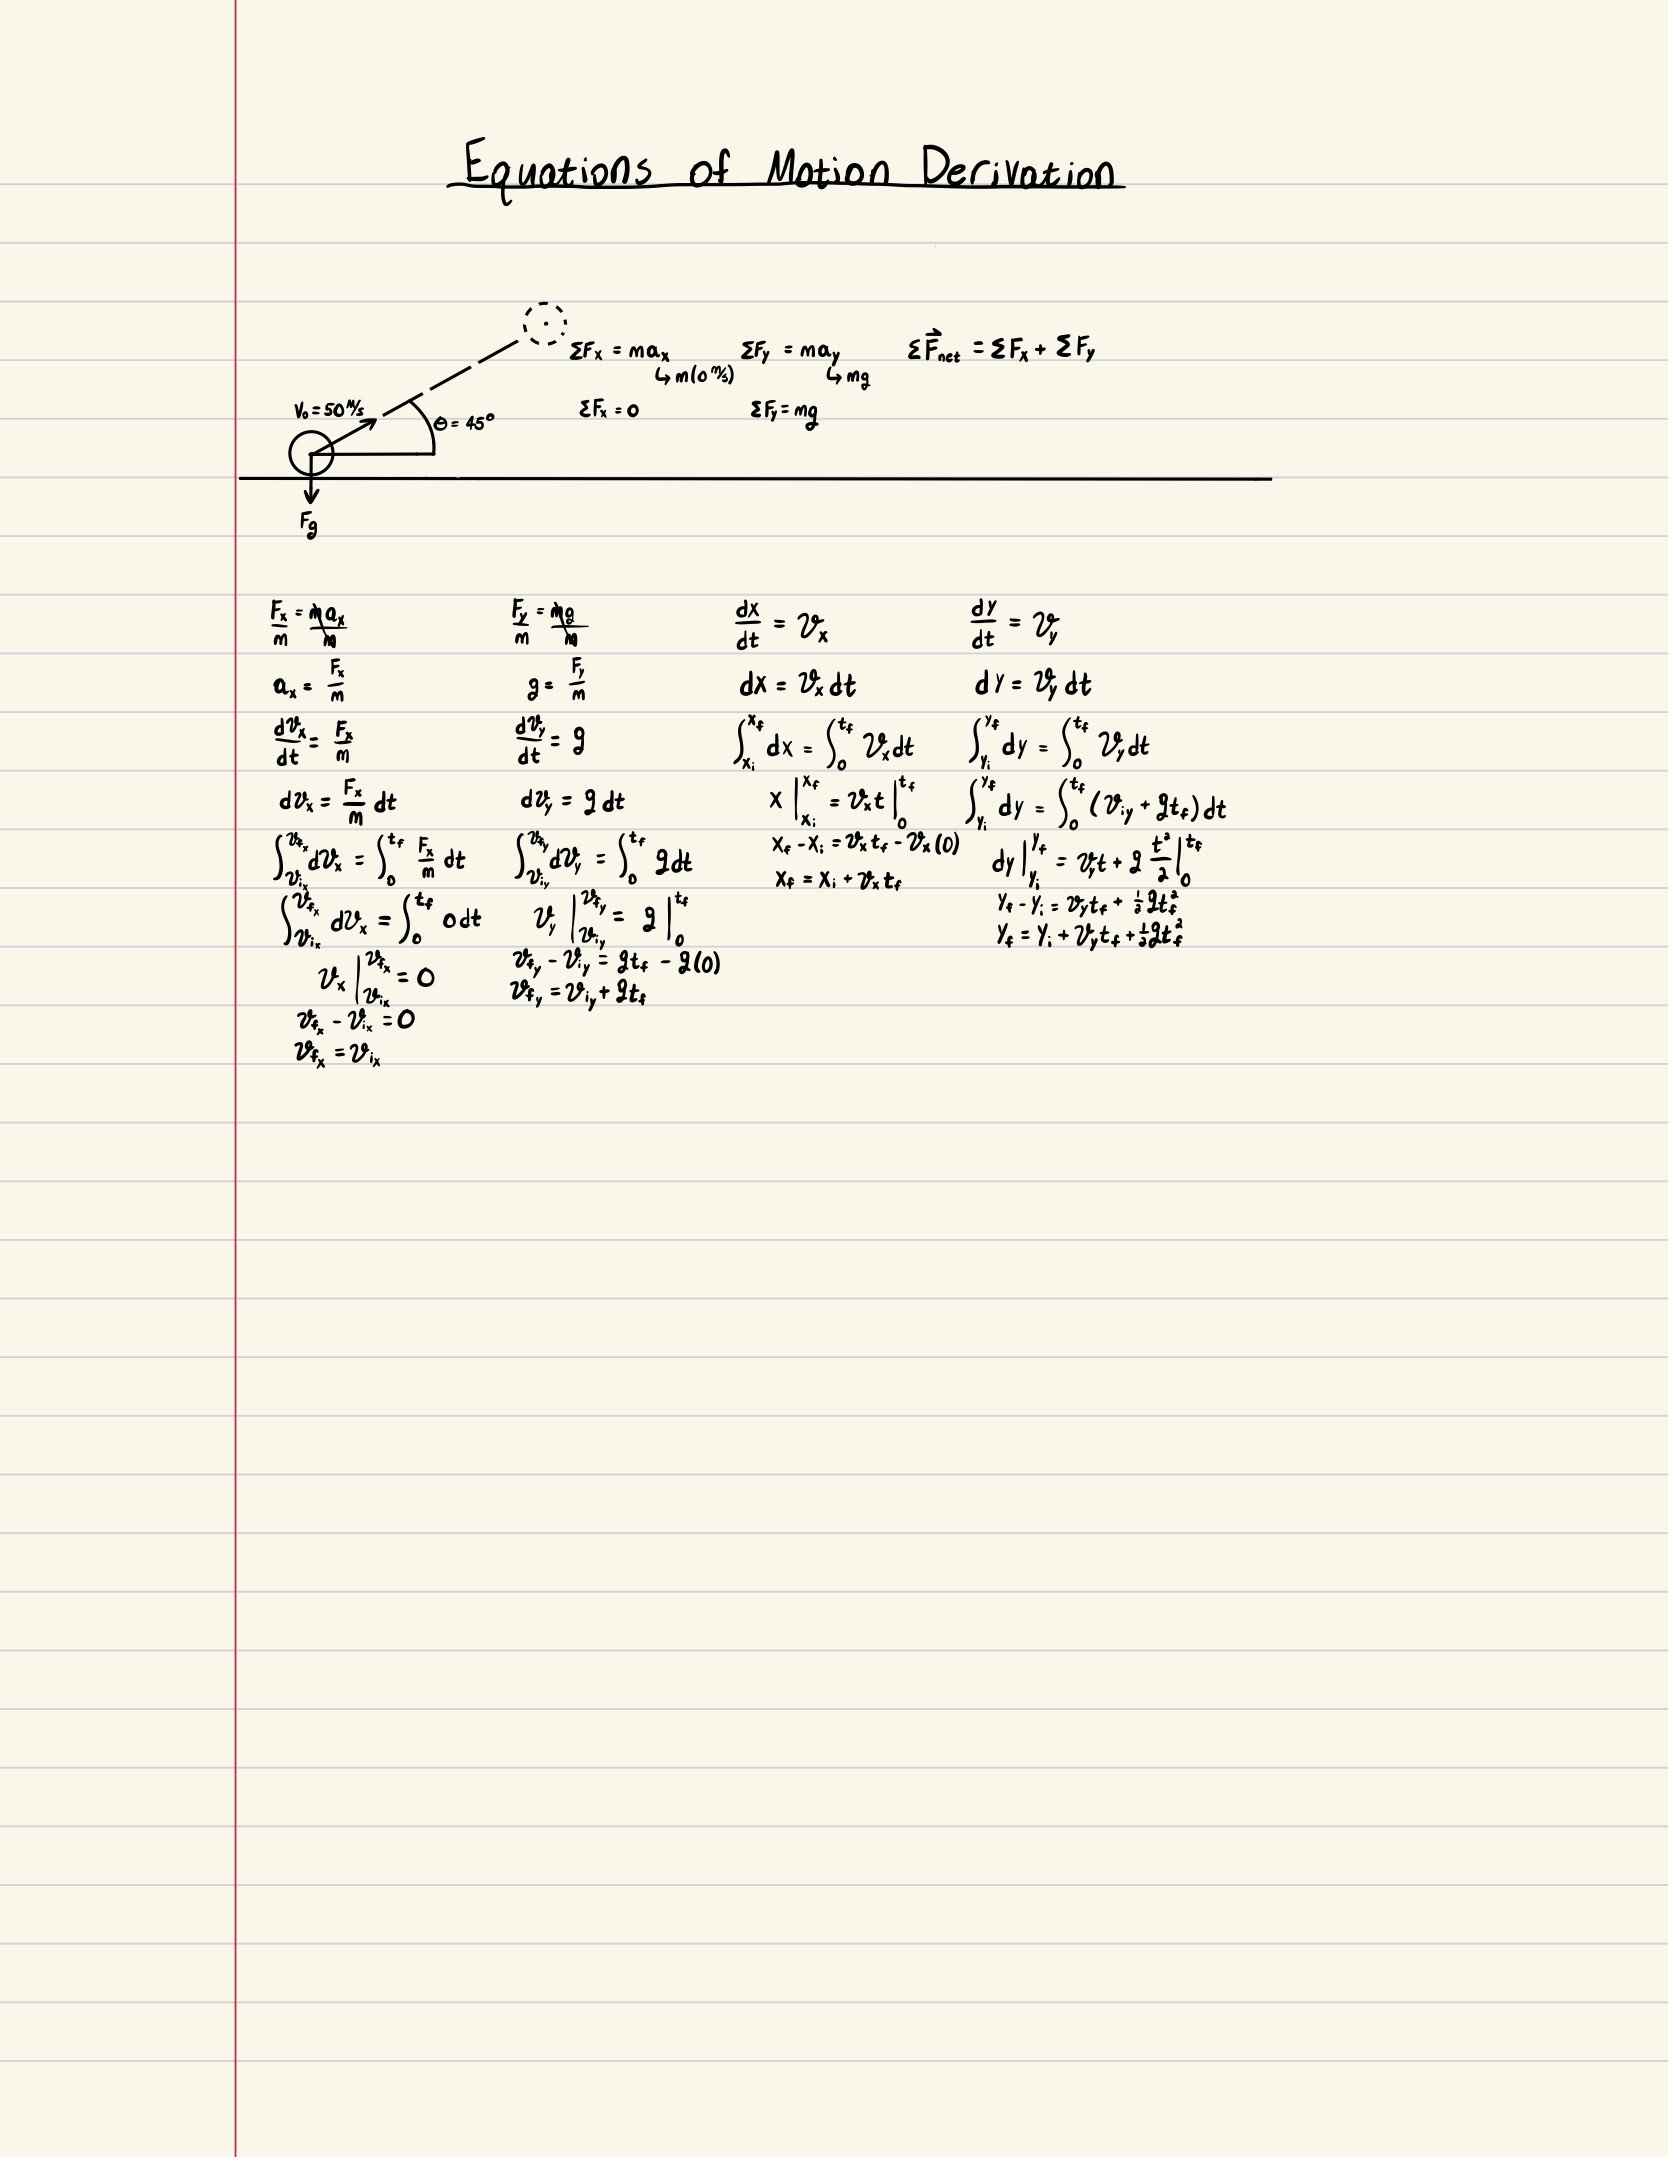 Equations of Motion Derivation
ΣFx = max ΣFy = may ΣF⃗net = ΣFx + ΣFy
↳ m(0 m/s) ↳ mg
V₀ = 50 M/s ΣFx = 0 ΣFy = mg
θ = 45°
Fg
Fx/m = max/m
ax = Fx/m
dvx/dt = Fx/m
dvx = Fx/m dt
∫_{vix}^{vfx} dvx = ∫_0^{tf} Fx/m dt
∫_{vix}^{vfx} dvx = ∫_0^{tf} 0 dt
vx |_{vix}^{vfx} = 0
vfx - vix = 0
vfx = vix
Fy/m = mg/m
g = Fy/m
dvy/dt = g
dvy = g dt
∫_{viy}^{vfy} dvy = ∫_0^{tf} g dt
vy |_{viy}^{vfy} = g |_0^{tf}
vfy - viy = gtf - g(0)
vfy = viy + gtf
dx/dt = vx
dx = vx dt
∫_{xi}^{xf} dx = ∫_0^{tf} vx dt
x |_{xi}^{xf} = vxt |_0^{tf}
xf - xi = vxtf - vx(0)
xf = xi + vxtf
dy/dt = vy
dy = vy dt
∫_{yi}^{yf} dy = ∫_0^{tf} vy dt
∫_{yi}^{yf} dy = ∫_0^{tf} (viy + gtf) dt
dy |_{yi}^{yf} = vyt + g t²/2 |_0^{tf}
yf - yi = vytf + ½gtf²
yf = yi + vytf + ½gtf²